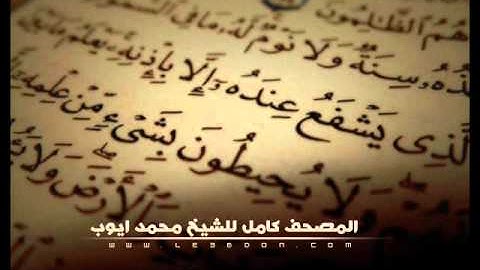 هُمُ ٱلظَّـٰلِمُونَ
خُذُهُۥ سِنَةٌ وَلَا نَوْمٌ لَّهُۥ مَا فِى ٱلسَّمَـٰوَ
لَّذِى يَشْفَعُ عِندَهُۥٓ إِلَّا بِإِذْنِهِۦ يَعْلَمُ مَا بَيْنَ
وَلَا يُحِيطُونَ بِشَىْءٍ مِّنْ عِلْمِهِۦٓ إِلَّا
ٱلْأَرْضَ وَلَا
المصحف كامل للشيخ محمد ايوب
www.le3boon.com